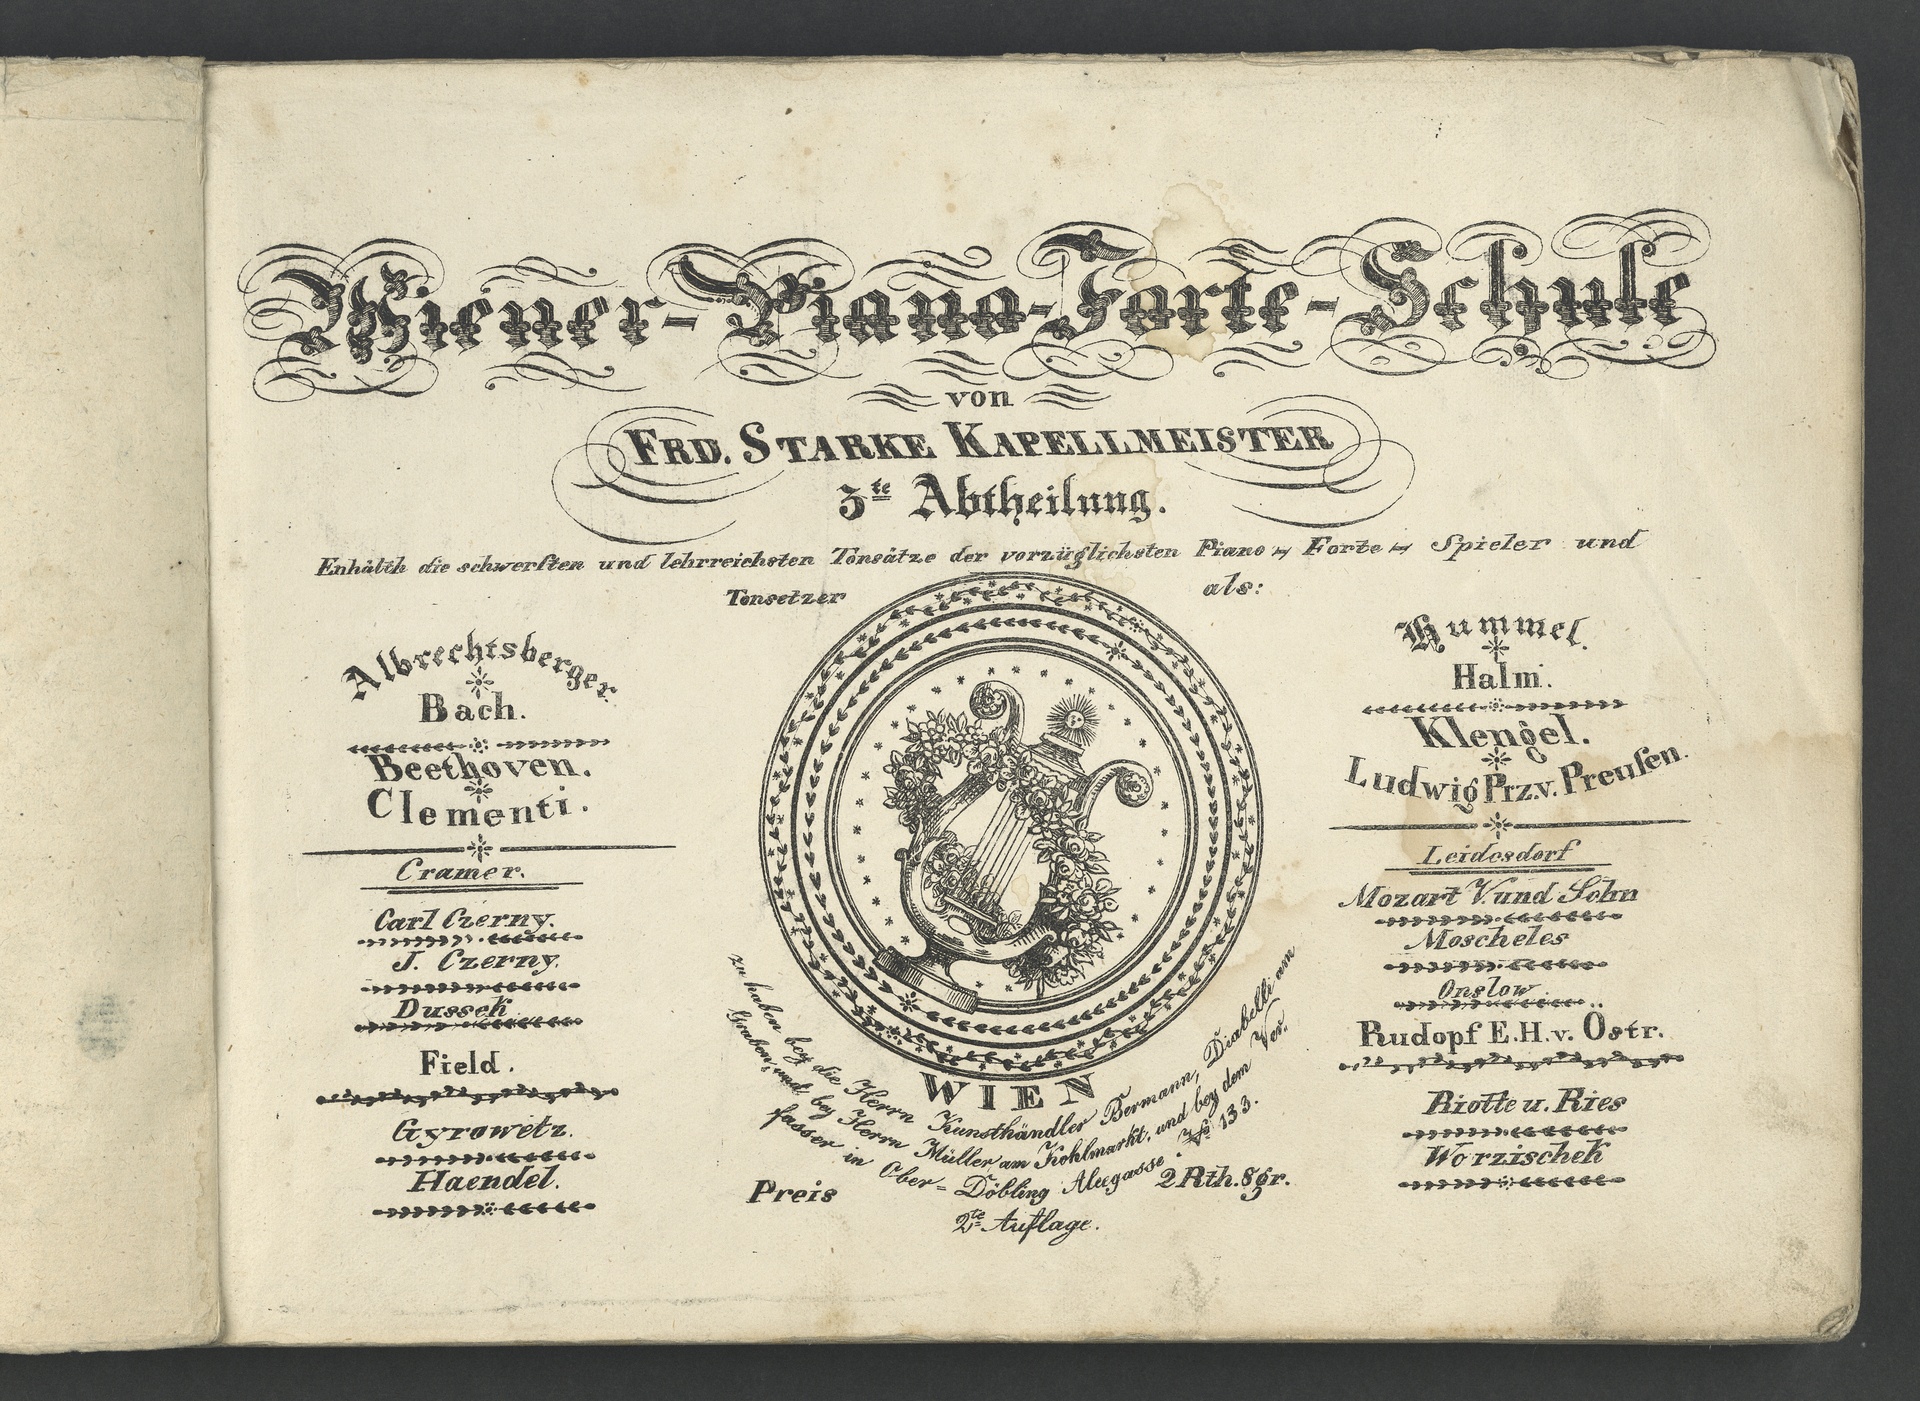 Wiener-Piano-Forte-Schule
von
FRD. STARKE KAPELLMEISTER
3te Abtheilung.
Enhälth die schwersten und lehrreichsten Tonsätze der vorzüglichsten Piano-Forte-Spieler und
Tonsetzer als:
Albrechtsberger.
Bach.
Beethoven.
Clementi.
Cramer.
Carl Czerny.
J. Czerny.
Dussek
Field.
Gyrowetz.
Haendel.
Hummel.
Halm.
Klengel.
Ludwig Prz.v. Preusen.
Leidesdorf
Mozart V. und Sohn
Moscheles
Onslow
Rudopf E.H.v. Östr.
Riotte u. Ries
Worzischek
WIEN
zu haben bey die Herrn Kunsthändler Bermann, Diabelli am
Graben, und bey Herrn Müller am Kohlmarkt, und bey dem Ver,
fasser in Ober-Döbling Alegasse No 133.
Preis 2 Rth. 8gr.
2te Auflage.